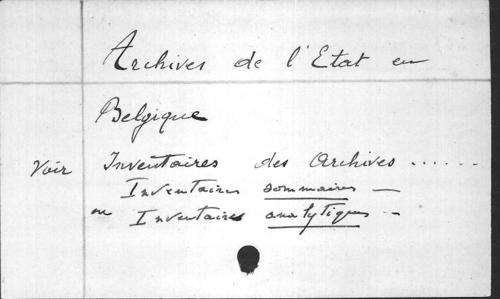 Archives de l'Etat en
Belgique
Voir Inventaires des Archives ......
Inventaires sommaires —
ou Inventaires analytiques —